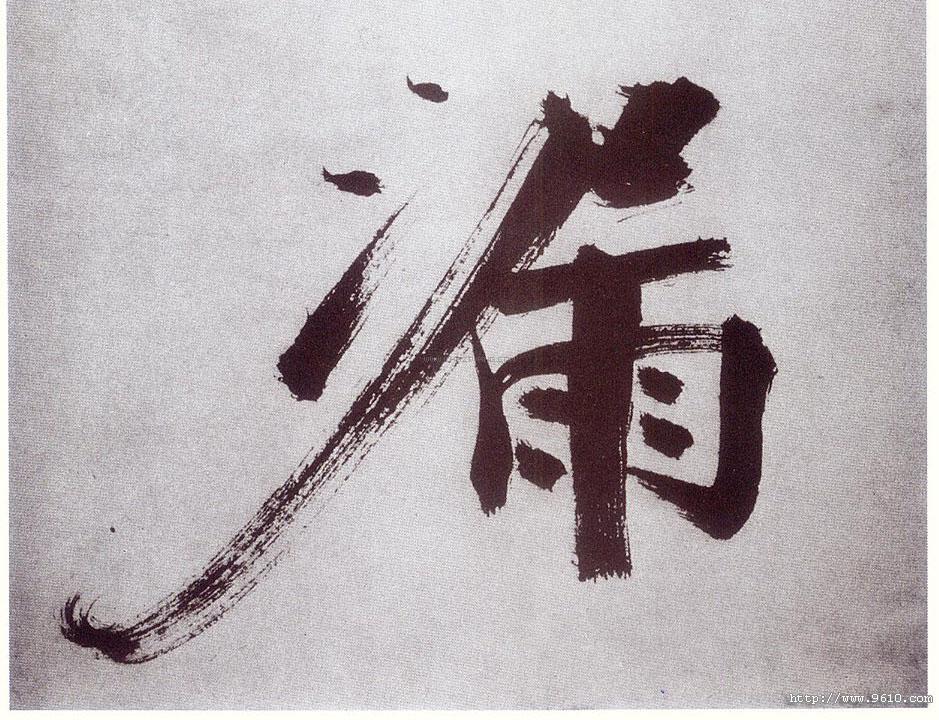 漏
http://www.9610.com